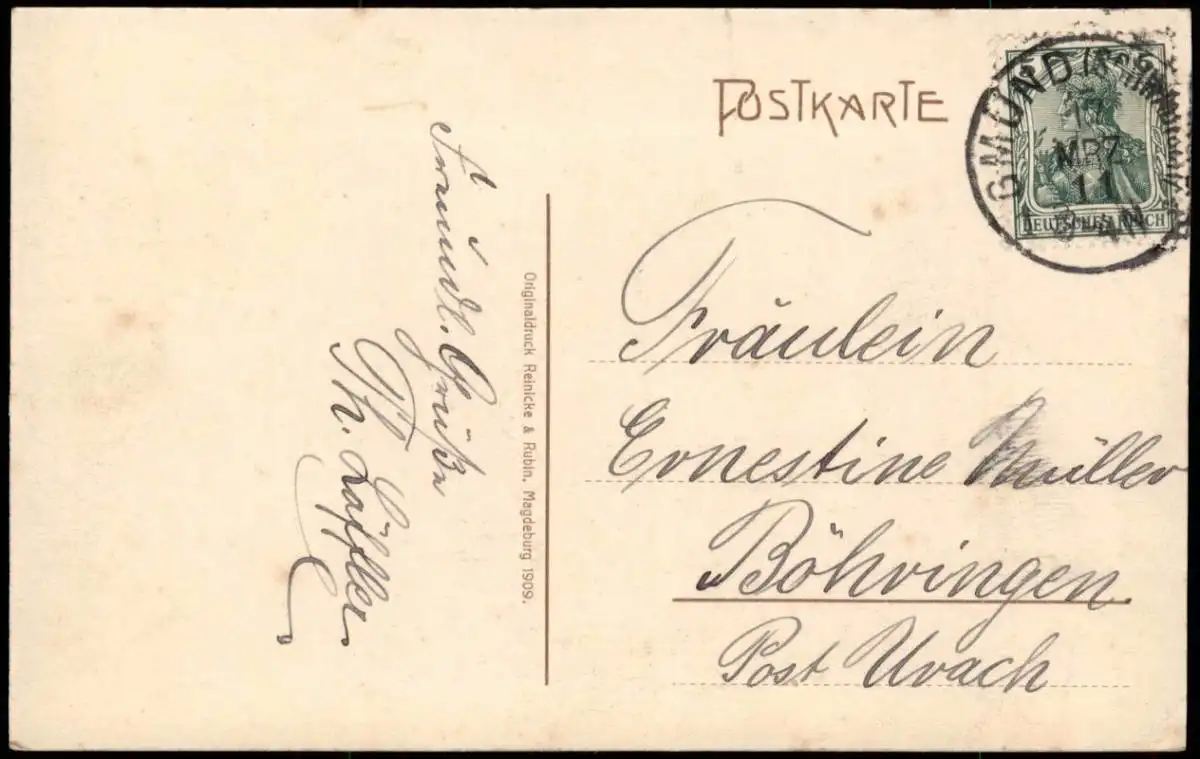 POSTKARTE
GMÜND (SCHWÄB.)
17
MRZ
11
DEUTSCHES REICH
Freundl. Grüße
Th. Löffler
Originaldruck Reinicke & Rubin, Magdeburg 1909.
Fräulein
Ernestine Müller
Böhringen
Post Urach